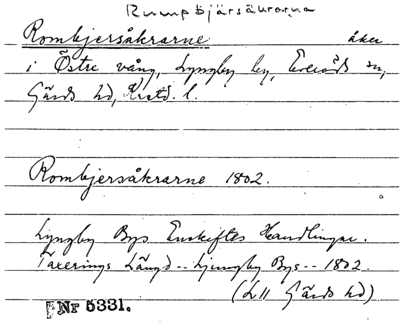 Rumpbjärsåkrarna
Rombjersåkrarne åker
i Östre vång, Lyngby by, Everöds sn,
Gärds hd, Krstd. l.
Rombjersåkrarne 1802.
Lyngby Bys Enskiftes Handlingar.
Taxerings Längd -- Ljungby Bys -- 1802.
(L II Gärds hd)
Nr 5331.